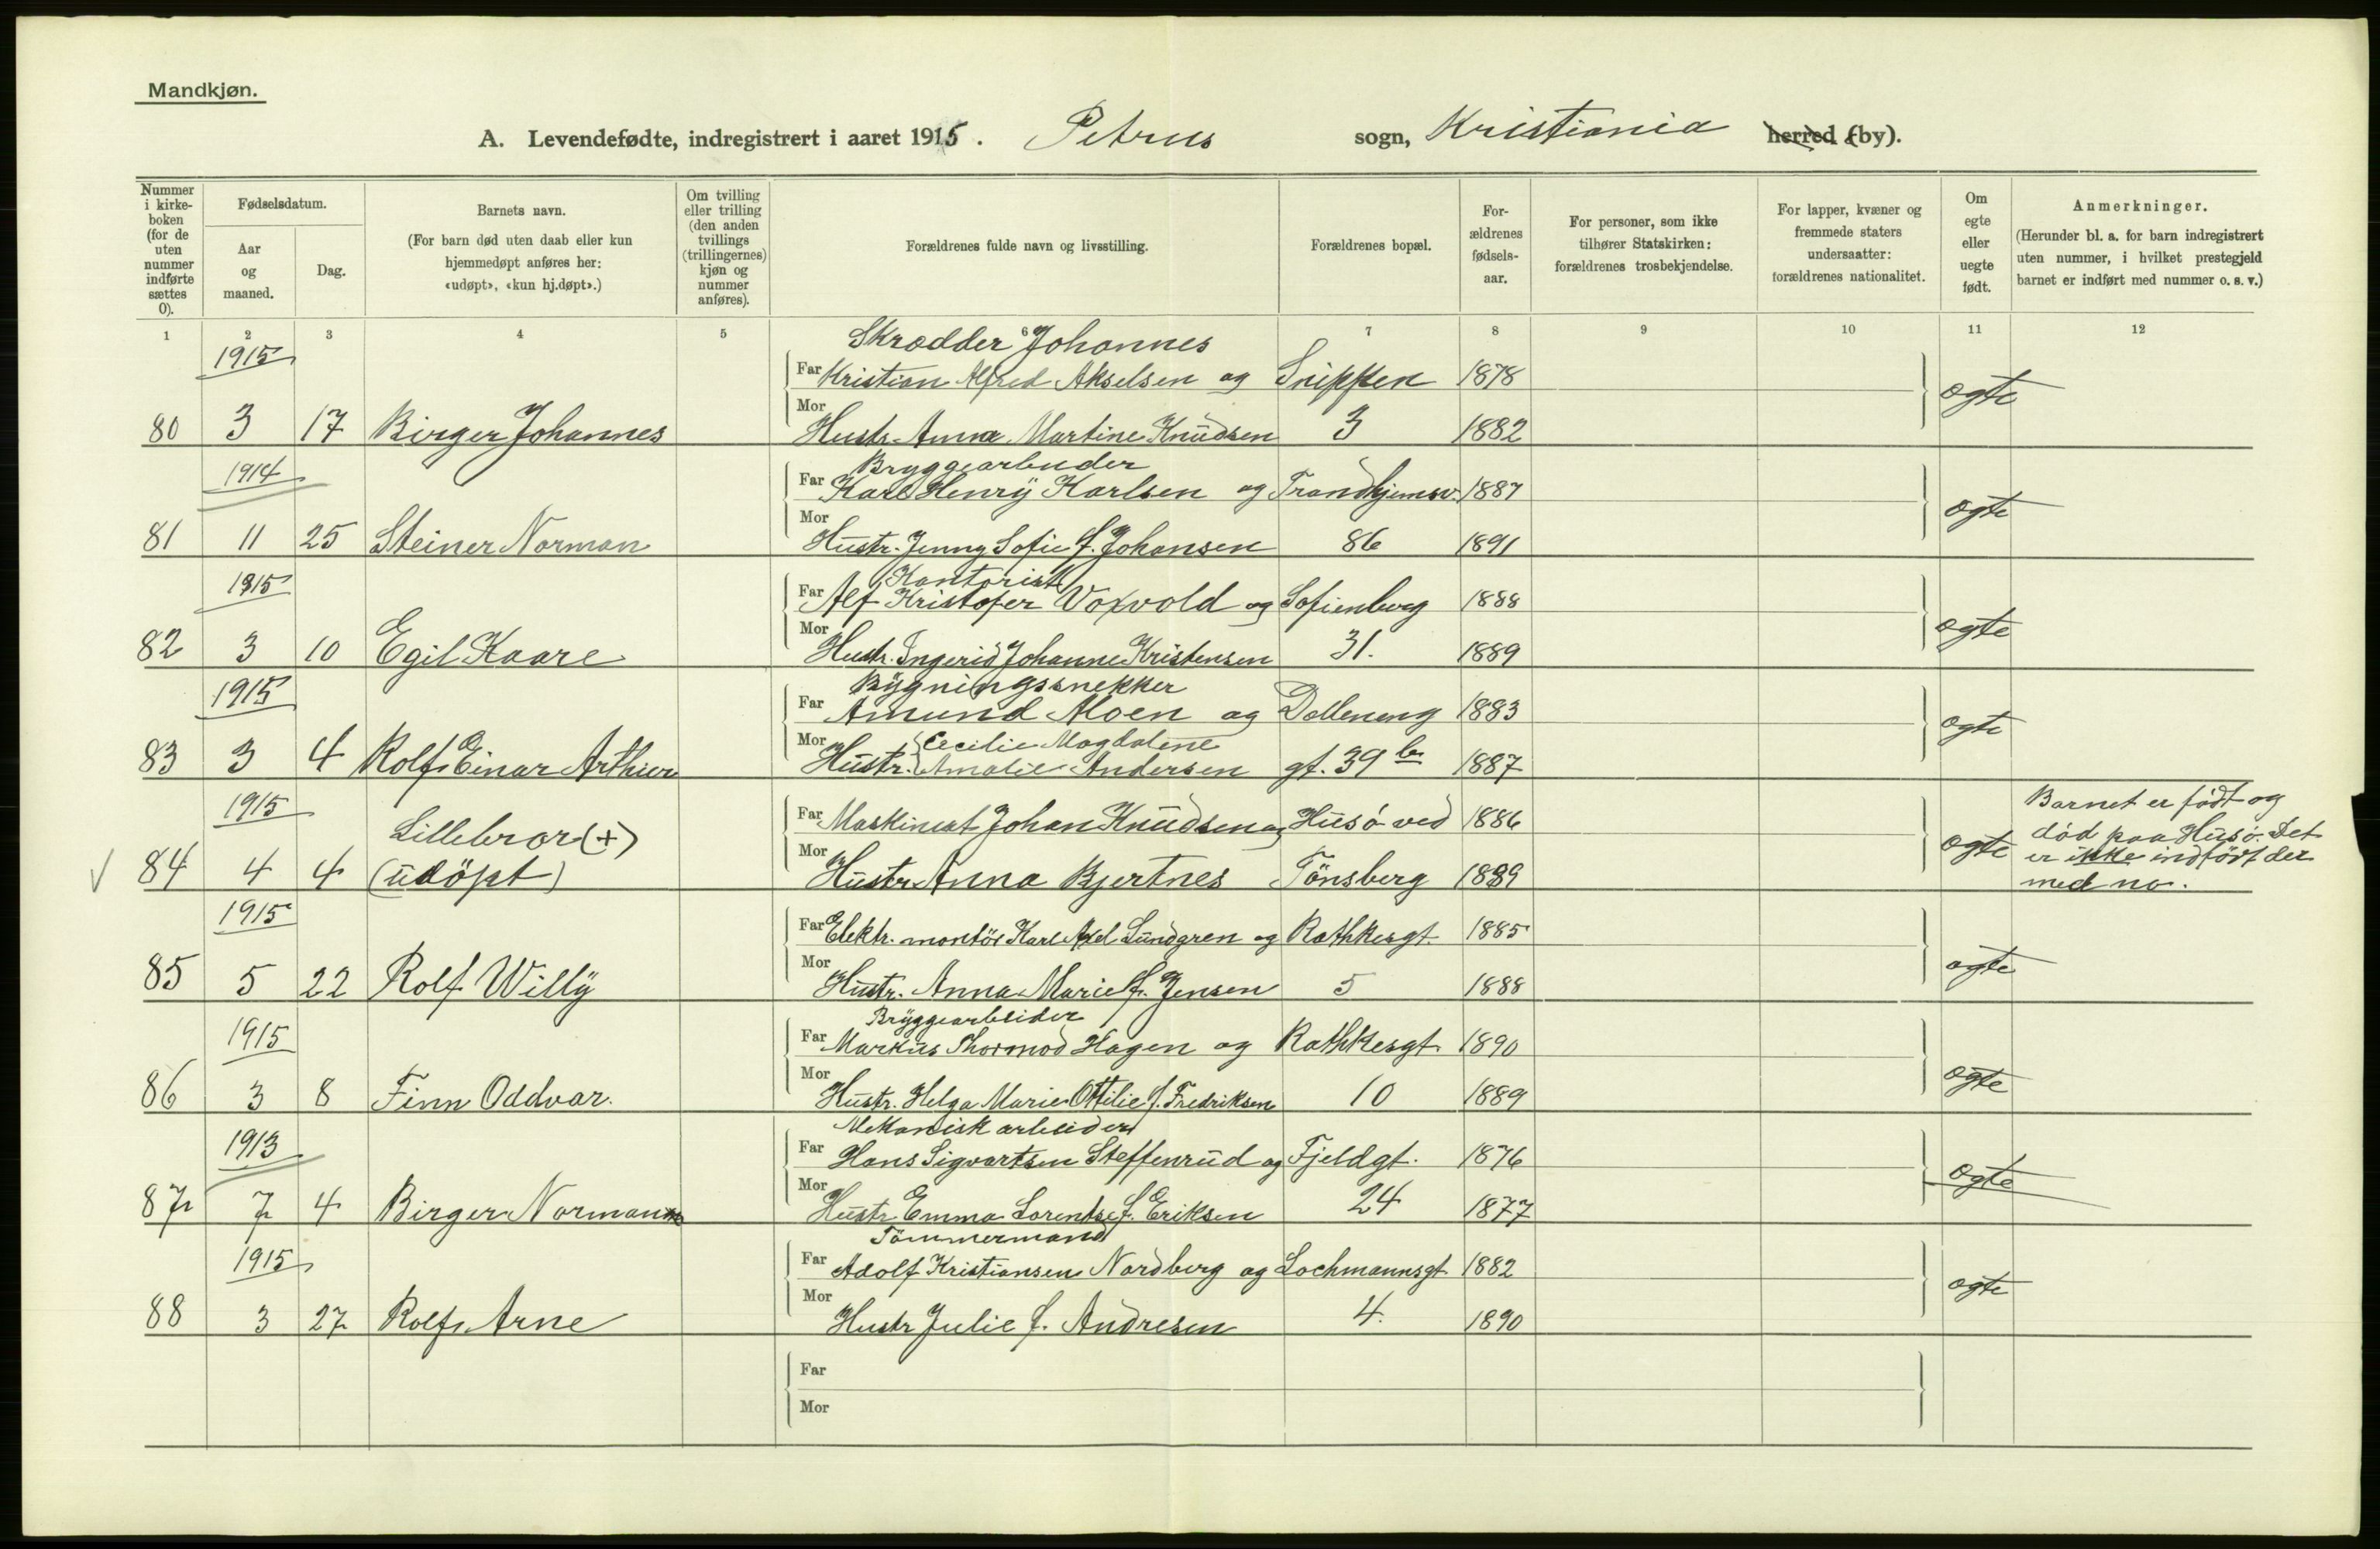 Mandkjøn.
A. Levendefødte, indregistrert i aaret 1915. Petrus sogn, Kristiania herred (by).
Nummer i kirkeboken (for de uten nummer indførte sættes 0).
Fødselsdatum.
Aar og maaned.
Dag.
Barnets navn.
(For barn død uten daab eller kun hjemmedøpt anføres her: «udøpt», «kun hj.døpt».)
Om tvilling eller trilling (den anden tvillings (trillingernes) kjøn og nummer anføres).
Forældrenes fulde navn og livsstilling.
Forældrenes bopæl.
Forældrenes fødselsaar.
For personer, som ikke tilhører Statskirken: forældrenes trosbekjendelse.
For lapper, kvæner og fremmede staters undersaatter: forældrenes nationalitet.
Om egte eller uegte født.
Anmerkninger.
(Herunder bl. a. for barn indregistrert uten nummer, i hvilket prestegjeld barnet er indført med nummer o. s. v.)
1 2 3 4 5 6 7 8 9 10 11 12
1915 Skrædder Johannes
Far Kristian Alfred Akselsen og Snippen 1878
80 3 17 Birger Johannes Mor Hustr. Anna Martine Knudsen 3 1882 ægte
1914 Bryggearbeider
Far Karl Henry Karlsen og Trondhjemsv. 1887
81 11 25 Steiner Norman Mor Hustr. Jenny Sofie f. Johansen 86 1891 ægte
1915 Kontorist
Far Alf Kristofer Voxvold og Sofienberg 1888
82 3 10 Egil Kaare Mor Hustr. Ingerid Johanne Kristensen 31. 1889 ægte
1915 Bygningssnekker
Far Amund Moen og Dælleneng 1883
Cecilie Magdalene
83 3 4 Rolf Einar Arthur Mor Hustr. Amalie Andersen gt. 39 b 1887 ægte
1915 Lillebror (+) Far Maskinist Johan Knudsen og Husö ved 1886
84 4 4 (udöpt) Mor Hustr. Anna Bjertnes Tönsberg 1889 ægte
Barnet er födt og
död paa Husö. Det
er ikke indfört der
med no.
1915 Far Elektr. montör Karl Axel Lundgren og Rathkesgt. 1885
85 5 22 Rolf Willy Mor Hustr. Anna Marie f. Jensen 5 1888 ægte
1915 Bryggearbeider
Far Markus Thormod Hagen og Rathkesgt. 1890
86 3 8 Finn Oddvar. Mor Hustr. Helga Marie Ottilie f. Fredriksen 10 1889 ægte
1913 Mekanisk arbeider
Far Hans Sigvartsen Steffenrud og Fjeldgt. 1876
87 7 4 Birger Normann Mor Hustr Emma Lorentse f. Eriksen 24 1877 ægte
1915 Tömmermand
Far Adolf Kristiansen Nordberg og Lochmannsgt. 1882
88 3 27 Rolf Arne Mor Hustr Julie f. Andresen 4. 1890 ægte
Far
Mor